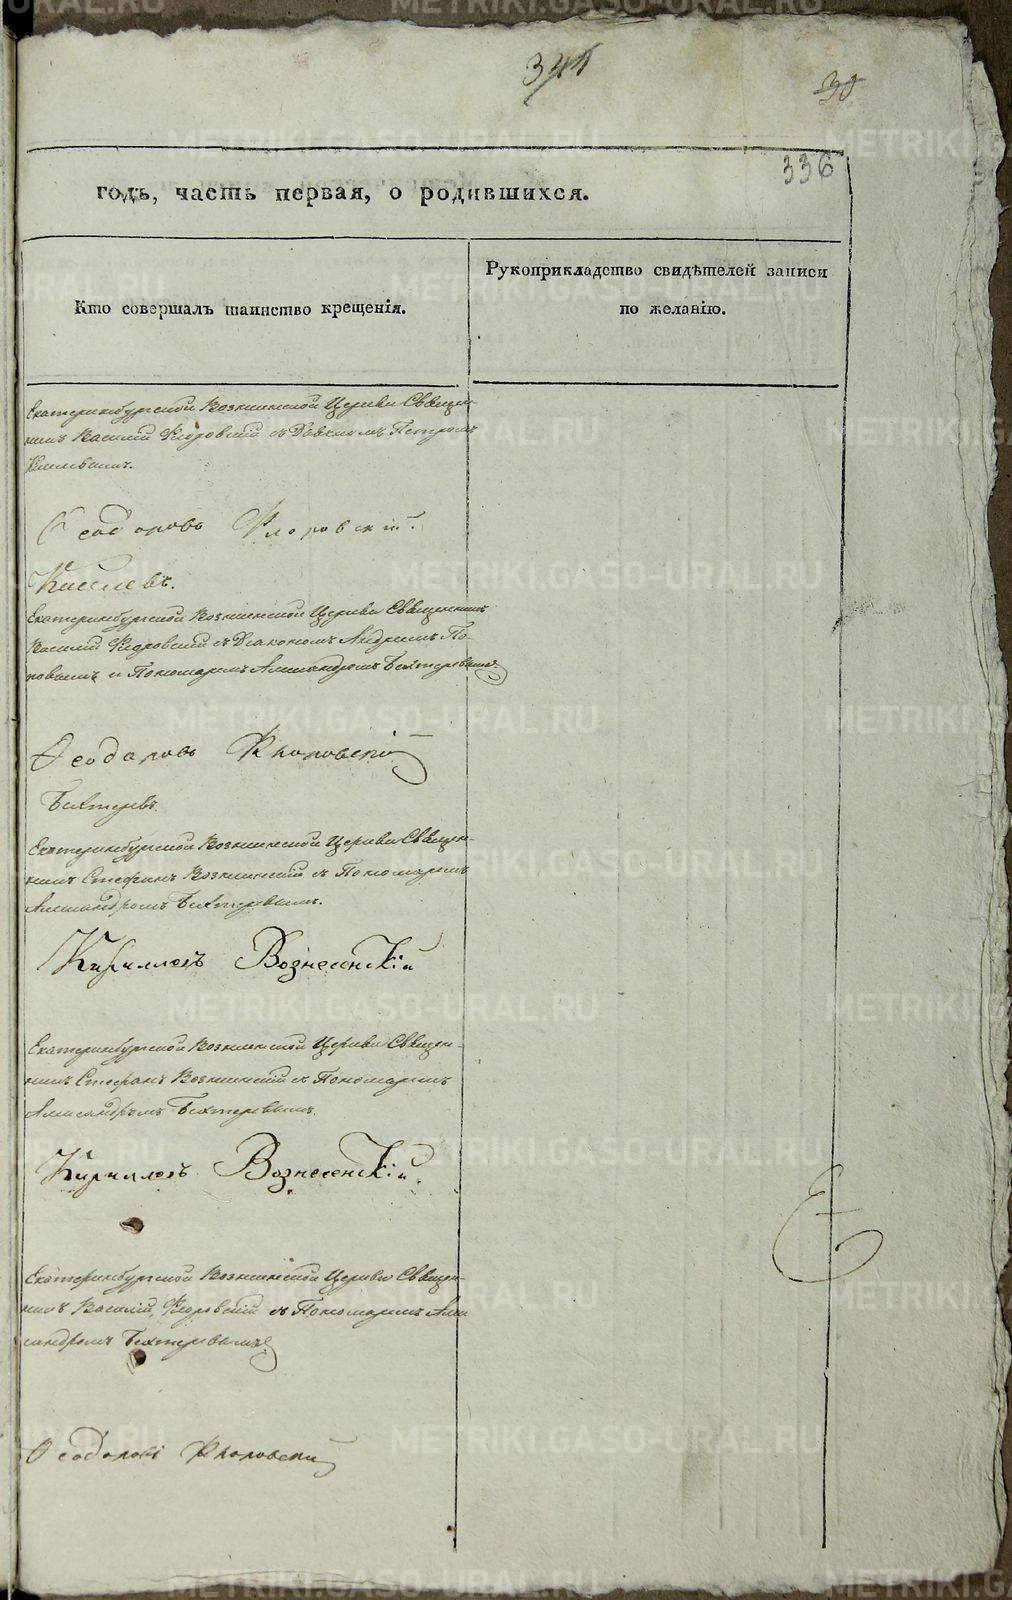 341
30
336
годъ, часть первая, о родившихся.
Кто совершалъ таинство крещенія.
Рукоприкладство свидѣтелей записи
по желанію.
Екатеринбургской Вознесенской Церкви Священ-
никъ Василій Флоровскій съ Петромъ
Киселевымъ.
Флоровскій.
Киселевъ.
Екатеринбургской Вознесенской Церкви Священникъ
Василій Флоровскій съ Діакономъ Андреемъ По-
повымъ и Пономаремъ Александромъ Бехтеревымъ
Флоровскій
Бехтеревъ.
Екатеринбургской Вознесенской Церкви Священ-
никъ Стефанъ Вознесенскій съ Пономаремъ
Александромъ Бехтеревымъ.
Кирилловъ Вознесенскій
Екатеринбургской Вознесенской Церкви Священ-
никъ Стефанъ Вознесенскій съ Пономаремъ
Александромъ Бехтеревымъ.
Кирилловъ Вознесенскій.
Екатеринбургской Вознесенской Церкви Священ-
никъ Василій Флоровскій съ Пономаремъ Алек-
сандромъ Бехтеревымъ
Флоровскій
METRIKI.GASO-URAL.RU